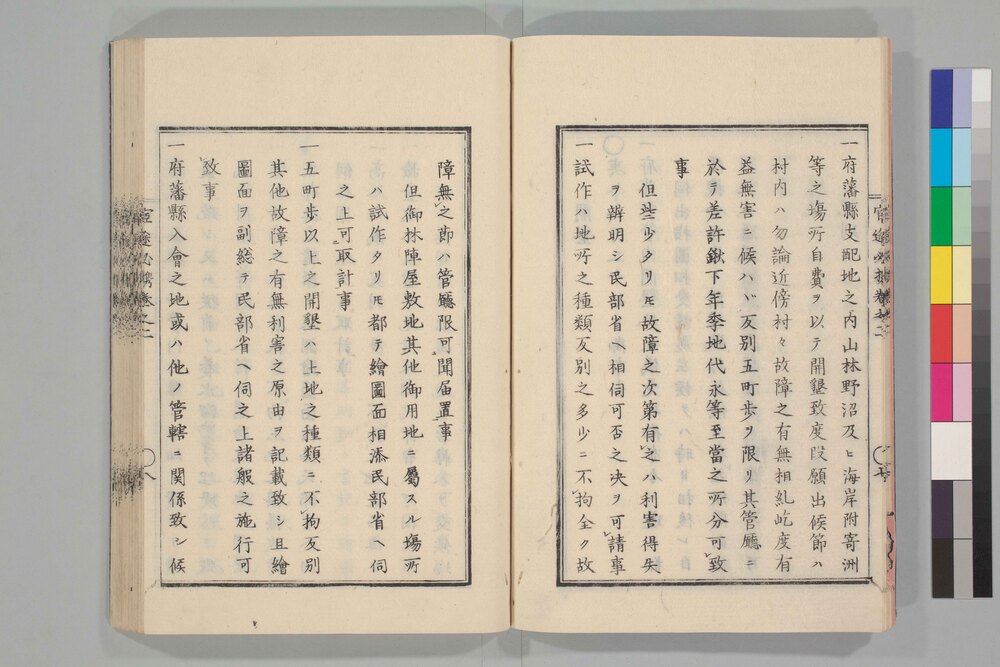 一府藩縣支配地之内山林野沼及ヒ海岸附寄洲
等之塲所自費ヲ以テ開墾致度段願出候節ハ
村内ハ勿論近傍村々故障之有無相糺屹度有
益無害ニ候ハヾ反別五町歩ヲ限リ其管廳ニ
於テ差許鍬下年季地代永等至當之所分可致
事
但些少タリ𪜈故障之次第有之ハ利害得失
ヲ辨明シ民部省ヘ相伺可否之决ヲ可請事
一試作ハ地所之種類反別之多少ニ不拘全ク故
障無之節ハ管廳限可聞届置事
但御林陣屋敷地其他御用地ニ屬スル塲所
ハ試作タリ𪜈都テ繪圖面相添民部省ヘ伺
之上可取計事
一五町歩以上之開墾ハ土地之種類ニ不拘反別
其他故障之有無利害之原由ヲ記載致シ且繪
圖面ヲ副総テ民部省ヘ伺之上諸般之施行可
致事
一府藩縣入會之地或ハ他ノ管轄ニ関係致シ候